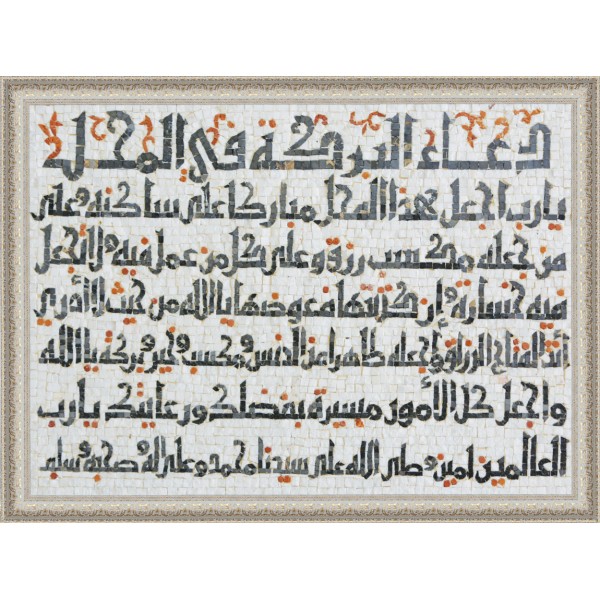 دعاء البركة في المحل
يارب اجعل هذا المحل مباركا على ساكنه وعلى
من جعله مكسب رزق وعلى كل من عمل فيه ولا تجعل
فيه خسارة وإن كتبتها عوضها يا الله من حيث لا أدري
أنت الفتاح الرزاق واجعله طاهرا من الدنس ومكسب وخير وبركة يا الله
واجعل كل الأمور ميسرة بفضلك ورعايتك يارب
العالمين امين وصلى الله على سيدنا محمد وعلى آله وصحبه وسلم